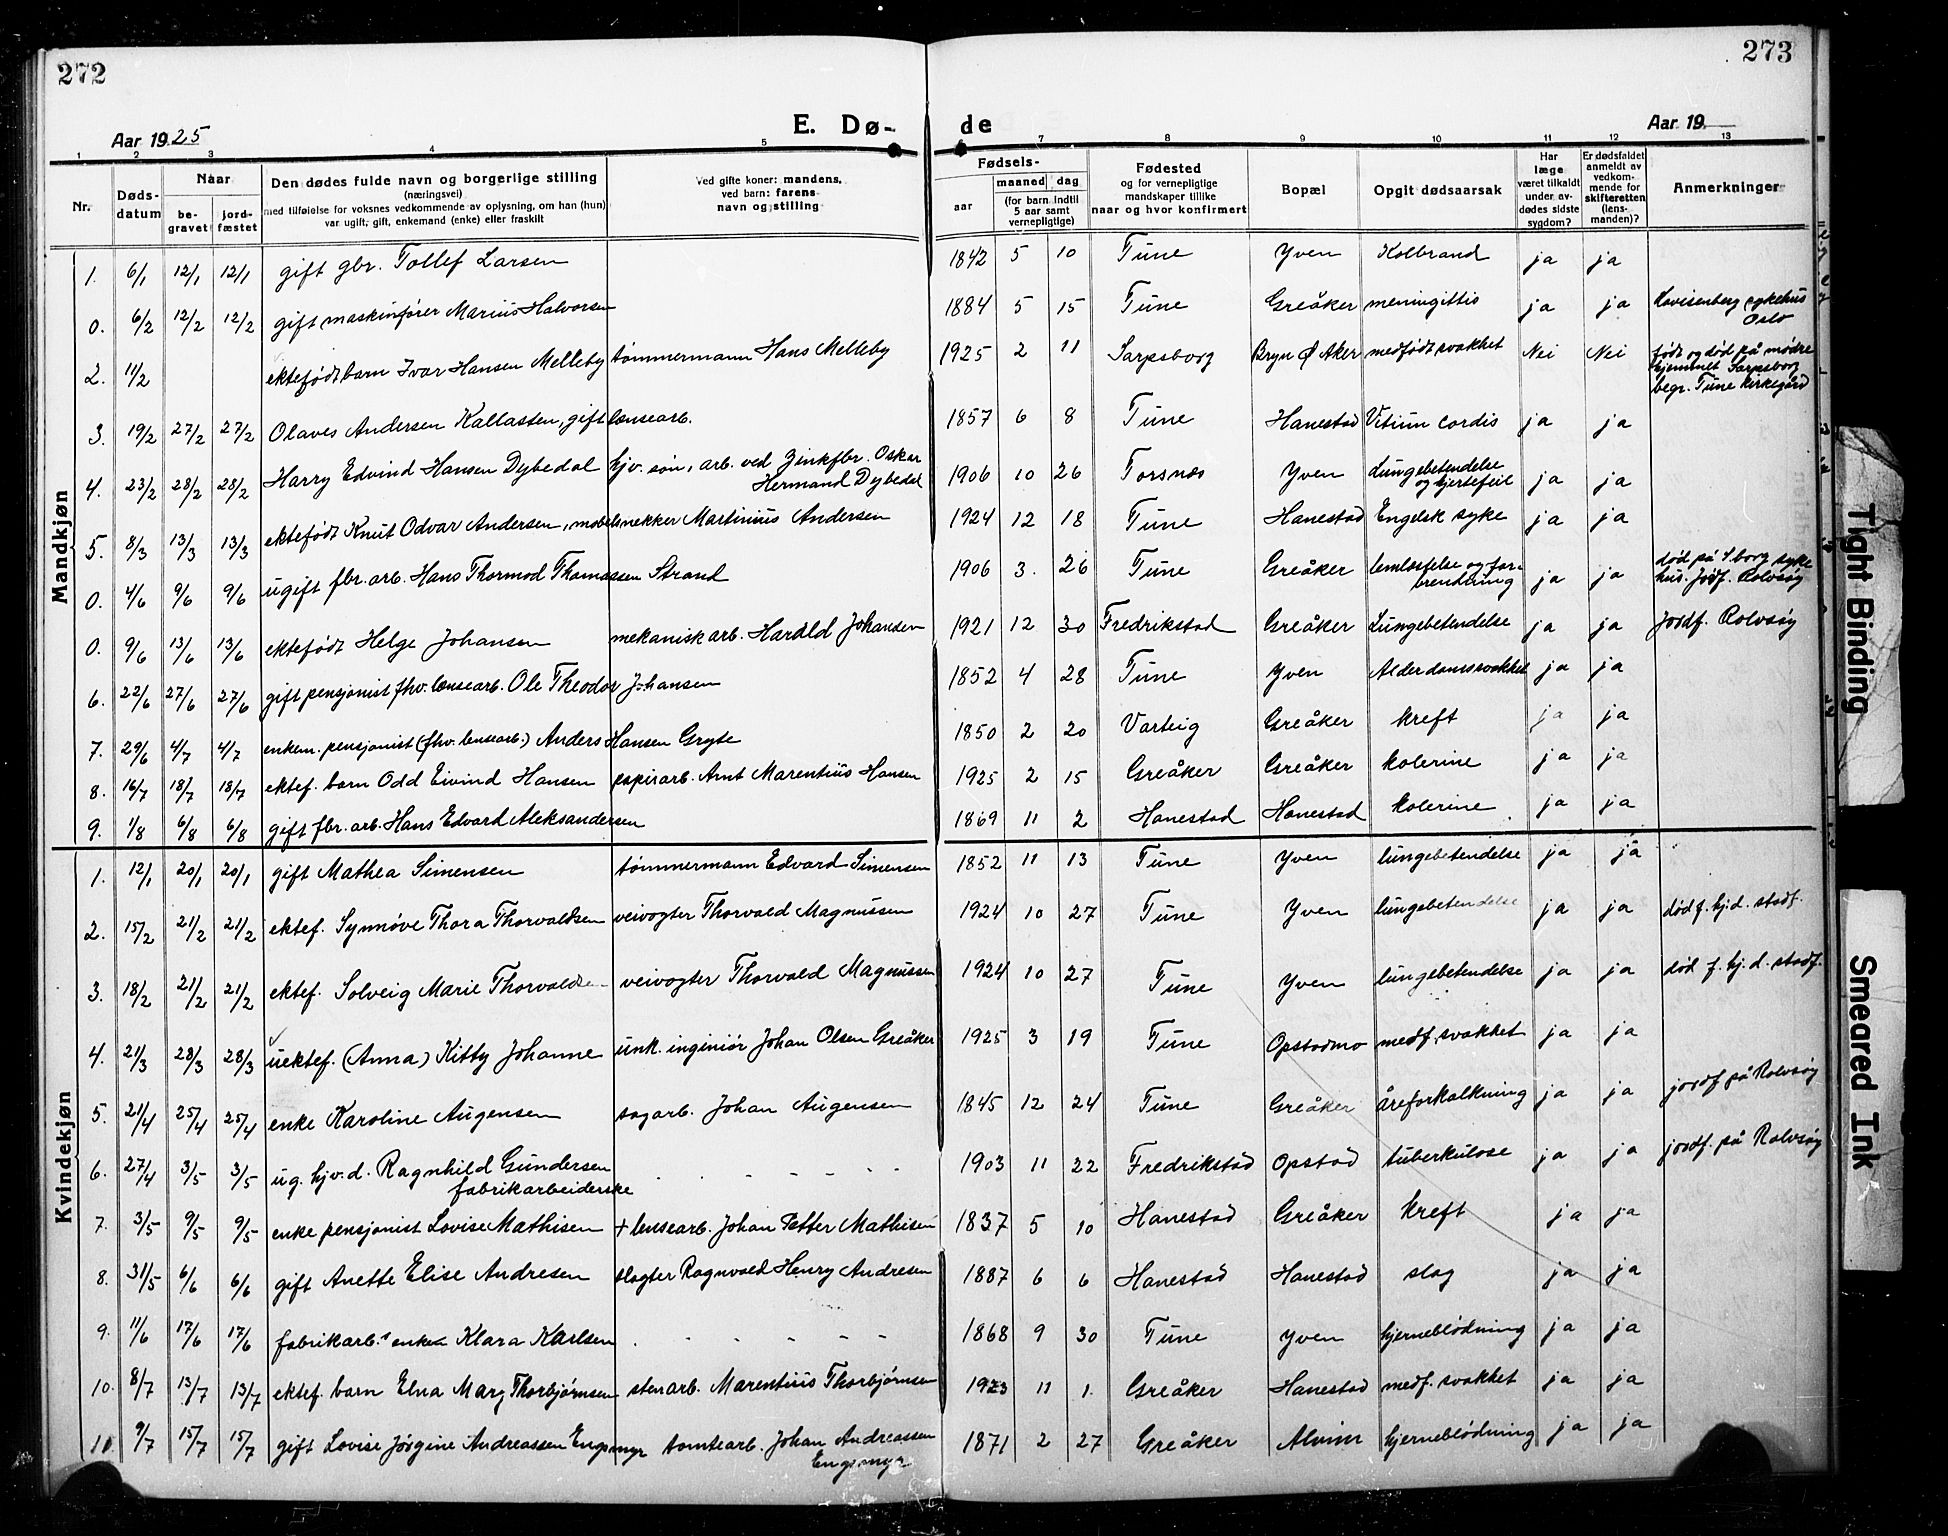 272
273
Aar 1925
E. Dø- de
Aar 19
1 2 3 4 5 6 7 8 9 10 11 12 13
Nr.
Døds-
datum
Naar
be-
gravet
jord-
fæstet
Den dødes fulde navn og borgerlige stilling
(næringsvei)
med tilføielse for voksnes vedkommende av oplysning, om han (hun)
var ugift, gift, enkemand (enke) eller fraskilt
Ved gifte koner: mandens,
ved barn: farens
navn og stilling
Fødsels-
aar
maaned dag
(for barn indtil
5 aar samt
vernepligtige)
Fødested
og for vernepligtige
mandskaper tillike
naar og hvor konfirmert
Bopæl
Opgit dødsaarsak
Har
læge
været tilkaldt
under av-
dødes sidste
sygdom?
Er dødsfaldet
anmeldt av
vedkom-
mende for
skifteretten
(lens-
manden)?
Anmerkninger
Mandkjøn
1. 6/1 12/1 12/1 gift gbr. Tollef Larsen 1842 5 10 Tune Yven Kolbrand ja ja
0. 6/2 12/2 12/2 gift maskinfører Marius Halvorsen 1884 5 15 Tune Greåker meningittis ja ja Lovisenberg sykehus
Oslo
2. 11/2 ektefødt barn Ivar Hansen Melleby tømmermann Hans Melleby 1925 2 11 Sarpsborg Bryn Ø Aker medfødt svakhet Nei Nei født og død på mødre
hjemmet Sarpsborg
begr. Tune kirkegård
3. 19/2 27/2 27/2 Olaves Andersen Kallasten, gift lensearb. 1857 6 8 Tune Hanestad Vitium cordis ja ja
4. 23/2 28/2 28/2 Harry Edvind Hansen Dybedal hjv. søn, arb. ved Zinkfbr. Oskar
Hermand Dybedal 1906 10 26 Torsnes Yven Lungebetendelse
og hjertefeil ja ja
5. 8/3 13/3 13/3 ektefødt Knut Odvar Andersen, møbelsnekker Martinius Andersen 1924 12 18 Tune Hanestad Engelsk syke ja ja
0. 4/6 9/6 9/6 ugift fbr. arb. Hans Thormod Thomassen Strand 1906 3. 26 Tune Greåker lemlæstelse og for-
brending ja ja død på S.borg syke
hus. Jodf. Rolvsøy
0. 9/6 13/6 13/6 ektefødt Helge Johansen mekanisk arb. Harald Johansen 1921 12 30 Fredrikstad Greåker Lungebetendelse ja ja Jordf. Rolvsøy
6. 22/6 27/6 27/6 gift pensjonist fhv. lensearb. Ole Theodor Johansen 1852 4 28 Tune Yven Alderdomssvakhet ja ja
7. 29/6 4/7 4/7 enkem. pensjonist (fhv. lensearb.) Anders Hansen Gryte 1850 2 20 Varteig Greåker kreft ja ja
8. 16/7 18/7 18/7 ektef. barn Odd Eivind Hansen papirarb. Arnt Marentius Hansen 1925 2 15 Greåker Greåker kolerine ja ja
9. 1/8 6/8 6/8 gift fbr. arb. Hans Edvard Aleksandersen 1869 11 2 Hanestad Hanestad kolerine ja ja
Kvindekjøn
1. 12/1 20/1 20/1 gift Mathea Simensen tømmermann Edvard Simensen 1852 11 13 Tune Yven lungebetendelse ja ja
2. 15/2 21/2 21/2 ektef. Synnøve Thora Thorvaldsen veivogter Thorvald Magnussen 1924 10 27 Tune Yven lungebetendelse ja ja død f. hj.d. stadf.
3. 18/2 21/2 21/2 ektef. Solveig Marie Thorvaldse- veivogter Thorvald Magnussen 1924 10 27 Tune Yven lungebetendelse ja ja død f. hj. d. stadf.
4. 21/3 28/3 28/3 uektef. (Anna) Kitty Johanne unk. ingeniør Johan Olsen Greåker 1925 3 19 Tune Opstadmo medf. svakhet ja ja
5. 21/4 25/4 25/4 enke Karoline Augensen sagarb. Johan Augensen 1845 12 24 Tune Greåker åreforkalkning ja ja jordf på Rolvsøy
6. 27/4 3/5 3/5 ug. hjv. d. Ragnhild Gundersen
fabrikarbeiderske 1903 11 22 Fredrikstad Opstad tuberkulose ja ja jordf. på Rolvsøy
7. 3/5 9/5 9/5 enke pensjonist Lovise Mathisen + lensearb. Johan Petter Mathisen 1837 5 10 Hanestad Greåker kreft ja ja
8. 31/5 6/6 6/6 gift Anette Elise Andresen slagter Ragnvald Henry Andresen 1887 6 6 Hanestad Hanestad slag ja ja
9. 11/6 17/6 17/6 fabrikarb.s enke Klara Karlsen 1868 9 30 Tune Yven hjerneblødning ja ja
10. 8/7 13/7 13/7 ektef. barn Elna Mary Thorbjørnsen stenarb. Marentius Thorbjørnsen 1923 11 1. Greåker Hanestad medf. svakhet ja ja
11 9/7 15/7 15/7 gift Lovise Jørgine Andreassen Engsmyr tomtearb. Johan Andreassen
Engsmyr 1871 2 27 Greåker Alvim hjerneblødning ja ja
Tight Binding
Smeared Ink